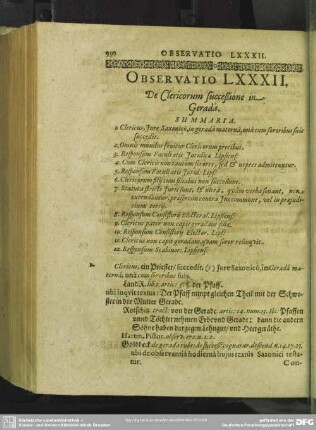 950 OBSERVATIO LXXXII.
OBSERVATIO LXXXII.
De Clericorum successione in
Gerada.
SUMMARIA.
1. Clericus, Jure Saxonico, in gerada materna, una cum sororibus suis
succedit.
2. Omnis mundus fruitur Clericorum precibus.
3. Responsum Facultatis Juridicæ Lipsens.
4. Cum Clericis non tantum sorores, sed & neptes admittuntur.
5. Responsum Facultatis Jurid. Lips.
6. Clericorum filiis non succedunt.
7. Statuta stricti Juris sunt, & ultra, quam verba sonant, non
extenduntur, præsertim contra Jus commune, vel in præjudi-
cium tertii.
8. Responsum Consistorii Electoral. Lipsens.
9. Clericus pater non capit geradam filiæ.
10. Responsum Consistorii Elector. Lips.
11. Clericus non capit geradam, quam soror reliquit.
12. Responsum Scabinor. Lipsens.
Clericus, ein Priester/ succedit (1) Jure Saxonico, in Gerada ma-
terna, unà cum sororibus suis.
LandR. lib. 1. artic. 5. §. der Pfaff.
ubi inquit textus: Der Pfaff nimpt gleichen Theil mit der Schwe-
ster in der Mutter Gerade.
Rotschitz. tract. von der Gerad. artic. 14. num. 15. Pfaffen
unnd Töchter nehmen Erbe und Gerade: dann die andern
Söhne haben dargegen Lehngut/ und Heergeräthe.
Hartm. Pistor.
Goldbeck de gerada
ubi de observantiâ hodiernâ hujus textus Saxonici testa-
tur.
Con-